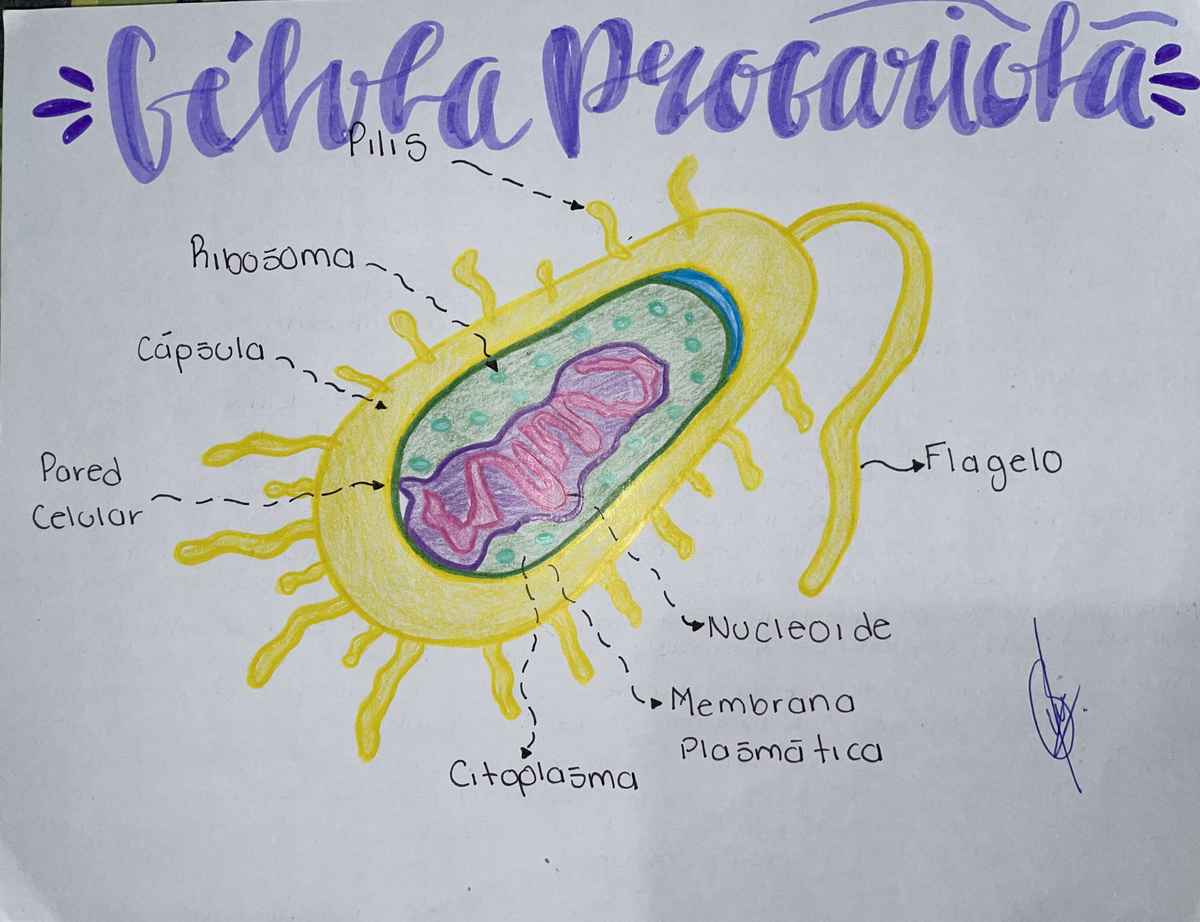 Célula Procariota
Pilis
Ribosoma
Cápsula
Pared
Celular
Flagelo
Nucleoide
Membrana
Plasmática
Citoplasma